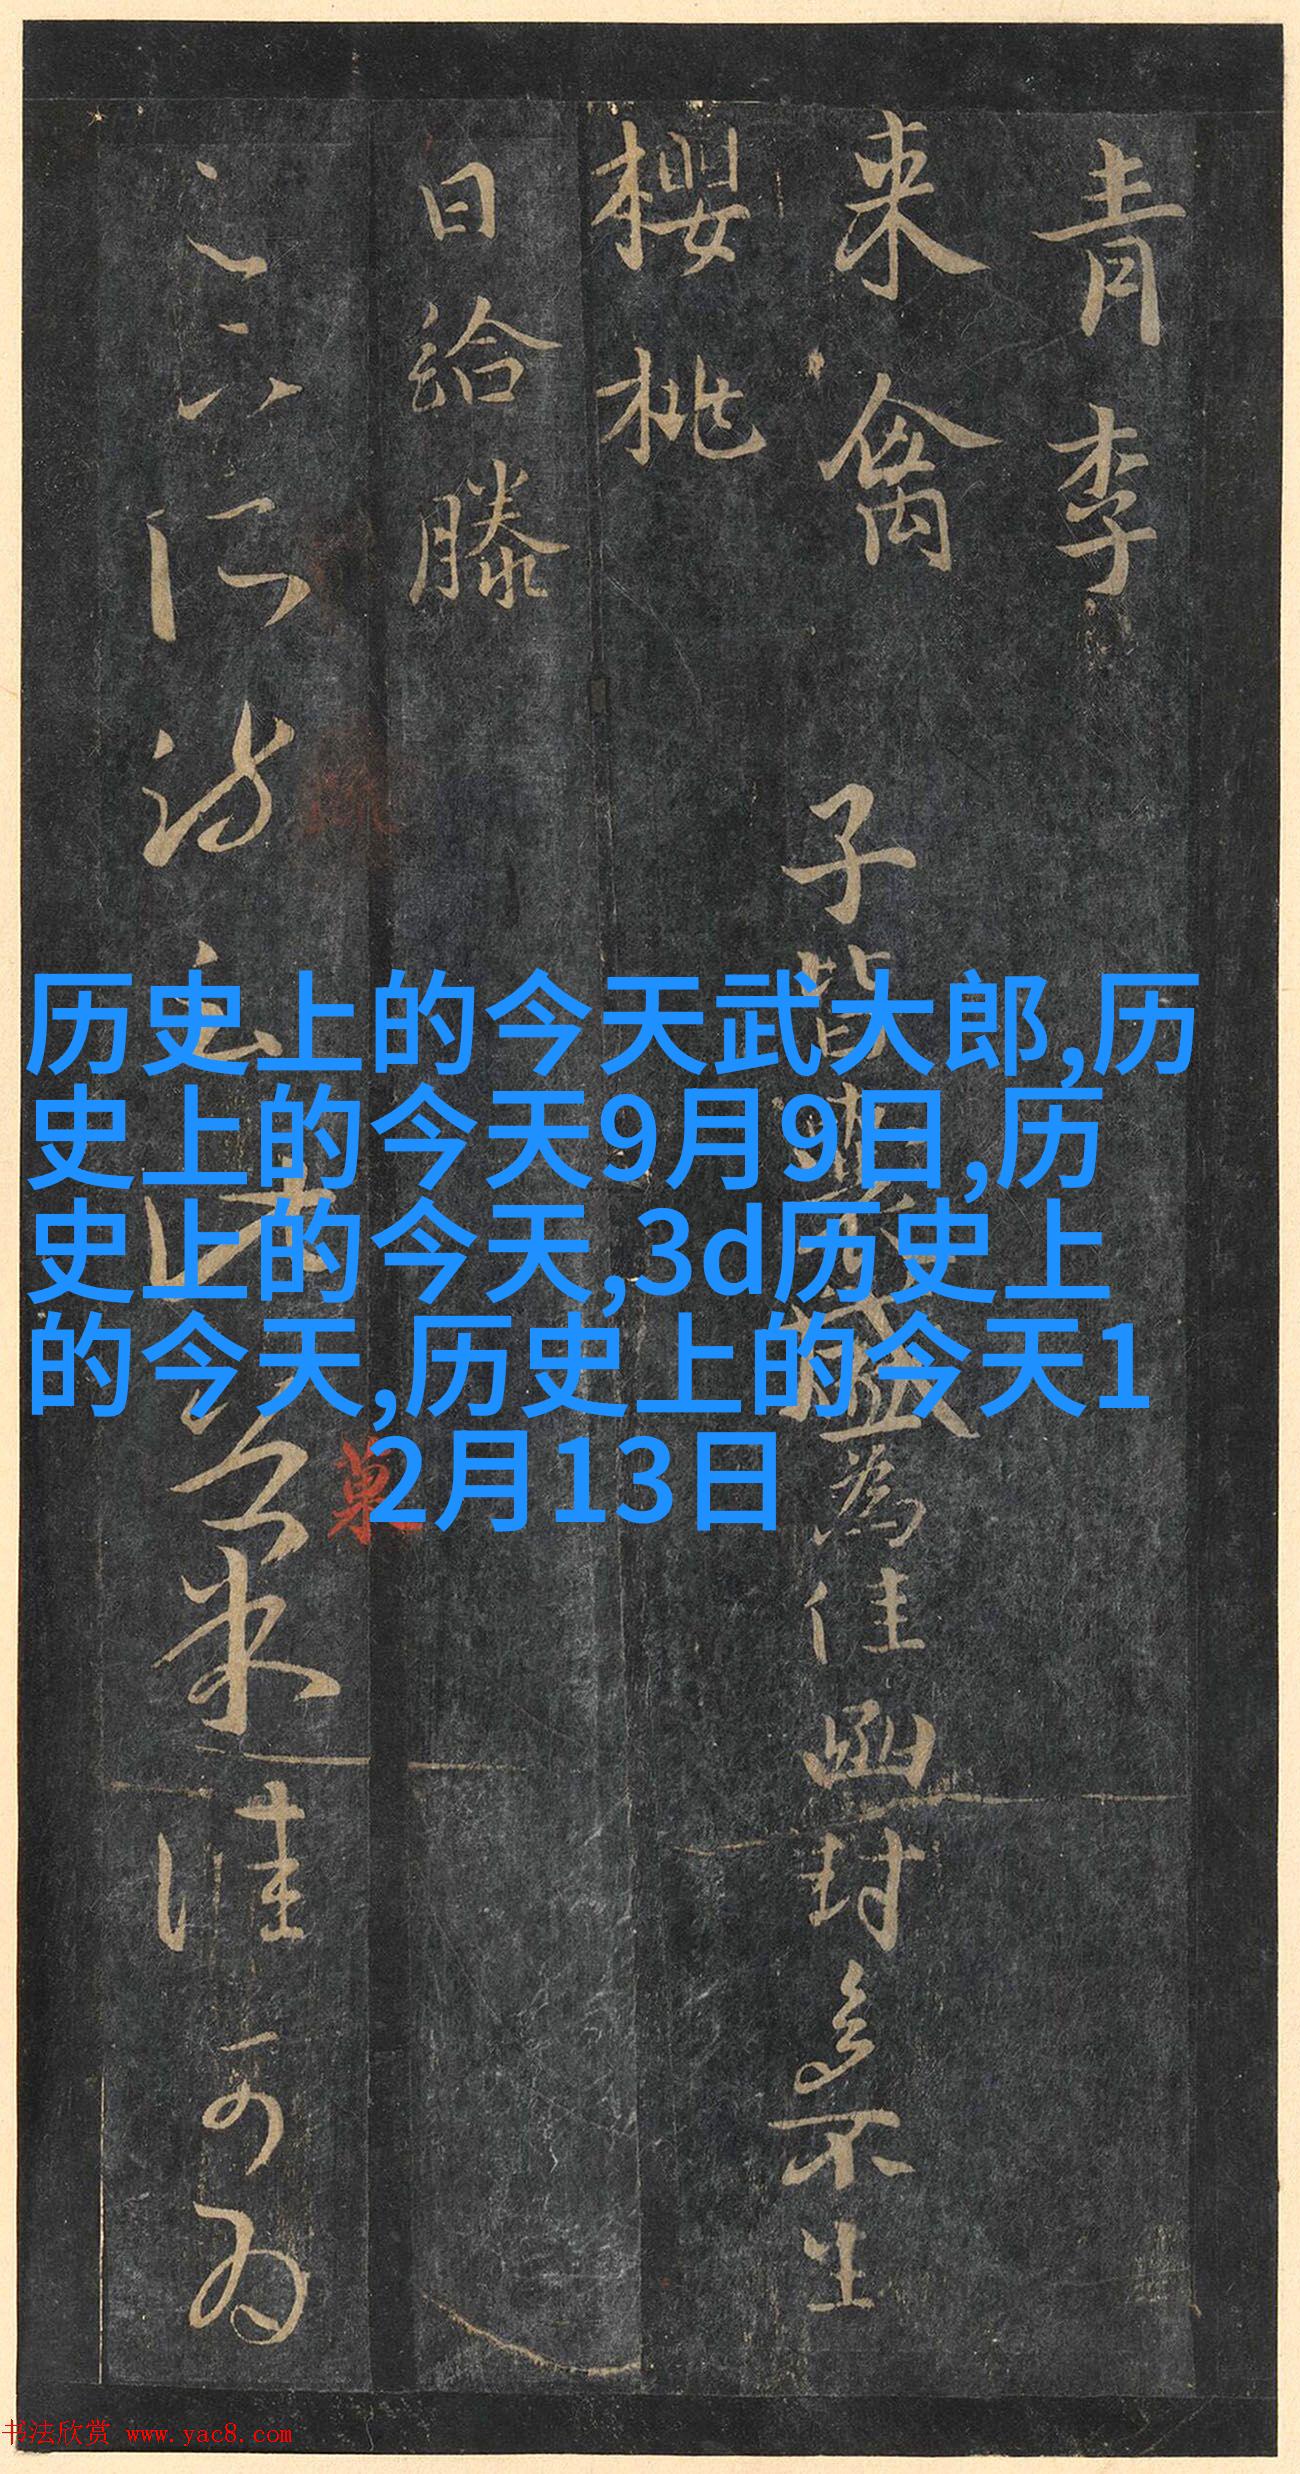 青李
来禽
櫻桃
日给滕
子皆囊盛為佳函封多不生
足下所疏云此菓佳可为
菓
历史上的今天武大郎,历
史上的今天9月9日,历
史上的今天,3d历史上
的今天,历史上的今天1
2月13日
书法欣赏 www.yac8.com